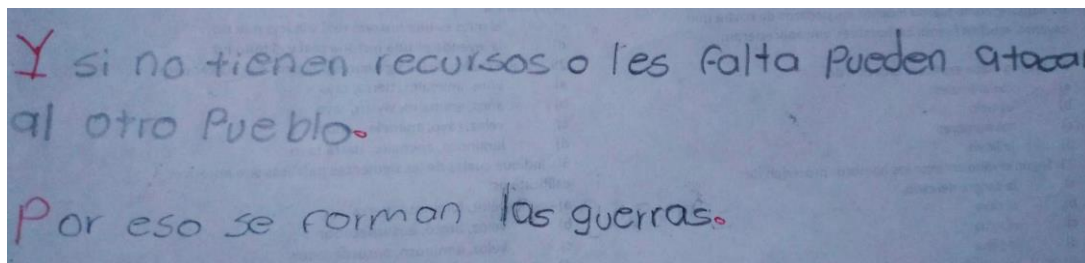 Y si no tienen recursos o les falta pueden atacar
al otro Pueblo.
Por eso se forman las guerras.